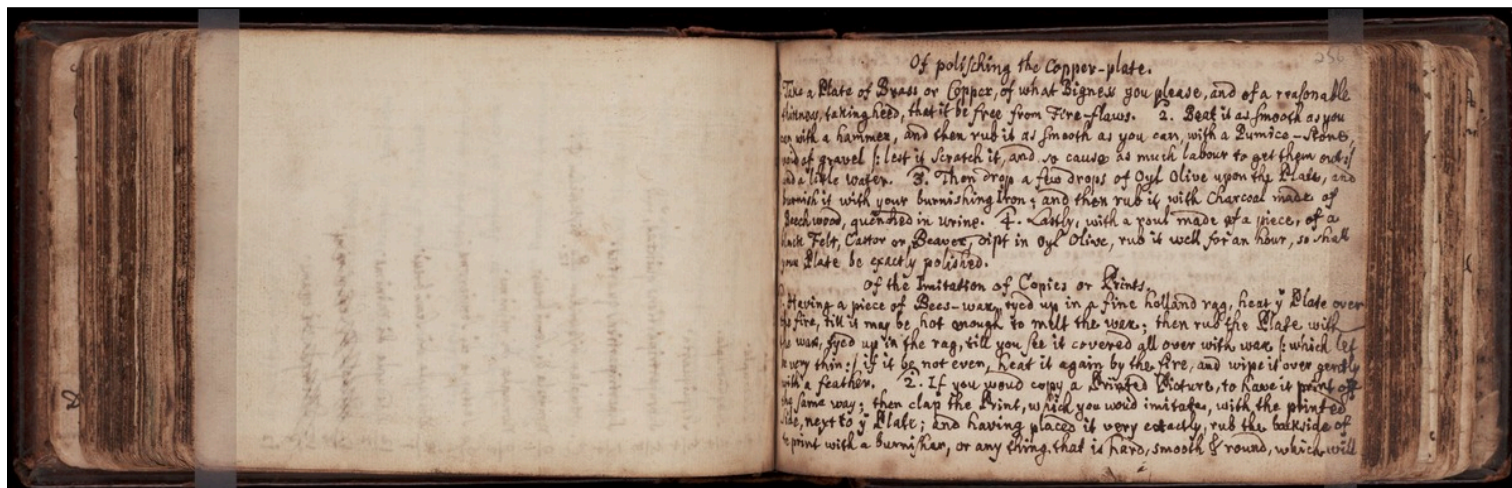 256
Of polisching the Copper-plate.
Take a Plate of Brass or Copper, of what Bigness you please, and of a reasonable
thickness, taking heed, that it be free from Fire-flaws. 2. Beat it as smooth as you
can with a hammer, and then rub it as smooth as you can, with a Pumice-stone,
void of gravel |: lest it scratch it, and so cause as much labour to get them out :|
and a little water. 3. Then drop a few drops of Oyl Olive upon the Plate, and
burnish it with your burnishing Iron; and then rub it with Charcoal made of
Beech wood, quenched in urine. 4. Lastly, with a roul made of a piece, of a
black Felt, Castor or Beaver, dipt in Oyl Olive, rub it well for an hour, so shall
your Plate be exactly polished.
Of the Imitation of Copies or Prints.
Having a piece of Bees-wax, tyed up in a fine holland rag, heat yͤ Plate over
the fire, till it may be hot enough to melt the wax; then rub the Plate with
the wax, tyed up in the rag, till you see it covered all over with wax |: which let
be very thin :| if it be not even, heat it again by the fire, and wipe it over gently
with a feather. 2. If you woud copy a Printed Picture, to have it print off
the same way; then clap the Print, which you woud imitate, with the printed
side, next to yͤ Plate; and having placed it very exactly, rub the backside of
the print with a burnisher, or any thing that is hard, smooth & round, which will